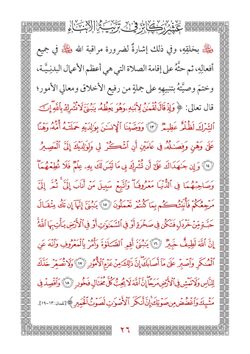 عشر ركائز في تربية الأبناء
ﷻ بخلقِهِ، وفي ذلك إشارةٌ لضرورة مراقبة الله ﷻ في جميع
أفعالِهِ، ثم حثُّه على إقامة الصلاة التي هي أعظم الأعمال البدنيَّة،
وختمَ وصيَّتَه بتنبيهِهِ على جملةٍ من رفيع الأخلاق ومعالي الأمور؛
قال تعالى: ﴿وَإِذْ قَالَ لُقْمَٰنُ لِٱبْنِهِۦ وَهُوَ يَعِظُهُۥ يَٰبُنَىَّ لَا تُشْرِكْ بِٱللَّهِ إِنَّ
ٱلشِّرْكَ لَظُلْمٌ عَظِيمٌ ١٣ وَوَصَّيْنَا ٱلْإِنسَٰنَ بِوَٰلِدَيْهِ حَمَلَتْهُ أُمُّهُۥ وَهْنًا
عَلَىٰ وَهْنٍ وَفِصَٰلُهُۥ فِى عَامَيْنِ أَنِ ٱشْكُرْ لِى وَلِوَٰلِدَيْكَ إِلَىَّ ٱلْمَصِيرُ
١٤ وَإِن جَٰهَدَاكَ عَلَىٰٓ أَن تُشْرِكَ بِى مَا لَيْسَ لَكَ بِهِۦ عِلْمٌ فَلَا تُطِعْهُمَا
وَصَاحِبْهُمَا فِى ٱلدُّنْيَا مَعْرُوفًا وَٱتَّبِعْ سَبِيلَ مَنْ أَنَابَ إِلَىَّ ثُمَّ إِلَىَّ
مَرْجِعُكُمْ فَأُنَبِّئُكُم بِمَا كُنتُمْ تَعْمَلُونَ ١٥ يَٰبُنَىَّ إِنَّهَآ إِن تَكُ مِثْقَالَ
حَبَّةٍ مِّنْ خَرْدَلٍ فَتَكُن فِى صَخْرَةٍ أَوْ فِى ٱلسَّمَٰوَٰتِ أَوْ فِى ٱلْأَرْضِ يَأْتِ بِهَا ٱللَّهُ
إِنَّ ٱللَّهَ لَطِيفٌ خَبِيرٌ ١٦ يَٰبُنَىَّ أَقِمِ ٱلصَّلَوٰةَ وَأْمُرْ بِٱلْمَعْرُوفِ وَٱنْهَ عَنِ
ٱلْمُنكَرِ وَٱصْبِرْ عَلَىٰ مَآ أَصَابَكَ إِنَّ ذَٰلِكَ مِنْ عَزْمِ ٱلْأُمُورِ ١٧ وَلَا تُصَعِّرْ خَدَّكَ
لِلنَّاسِ وَلَا تَمْشِ فِى ٱلْأَرْضِ مَرَحًا إِنَّ ٱللَّهَ لَا يُحِبُّ كُلَّ مُخْتَالٍ فَخُورٍ ١٨ وَٱقْصِدْ فِى
مَشْيِكَ وَٱغْضُضْ مِن صَوْتِكَ إِنَّ أَنكَرَ ٱلْأَصْوَٰتِ لَصَوْتُ ٱلْحَمِيرِ﴾ [لقمان: ١٣-١٩].
٢٦